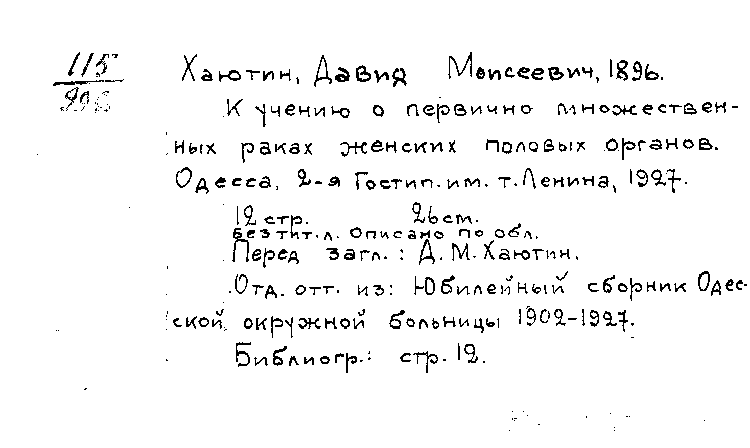 115
Хаютин, Давид Моисеевич, 1896.
К учению о первично множествен-
ных раках женских половых органов.
Одесса, 2-я Гостип. им. т. Ленина, 1927.
12 стр. 26 см.
Без тит. л. Описано по обл.
Перед загл.: Д. М. Хаютин.
Отд. отт. из: Юбилейный сборник Одес-
ской окружной больницы 1902-1927.
Библиогр.: стр. 12.